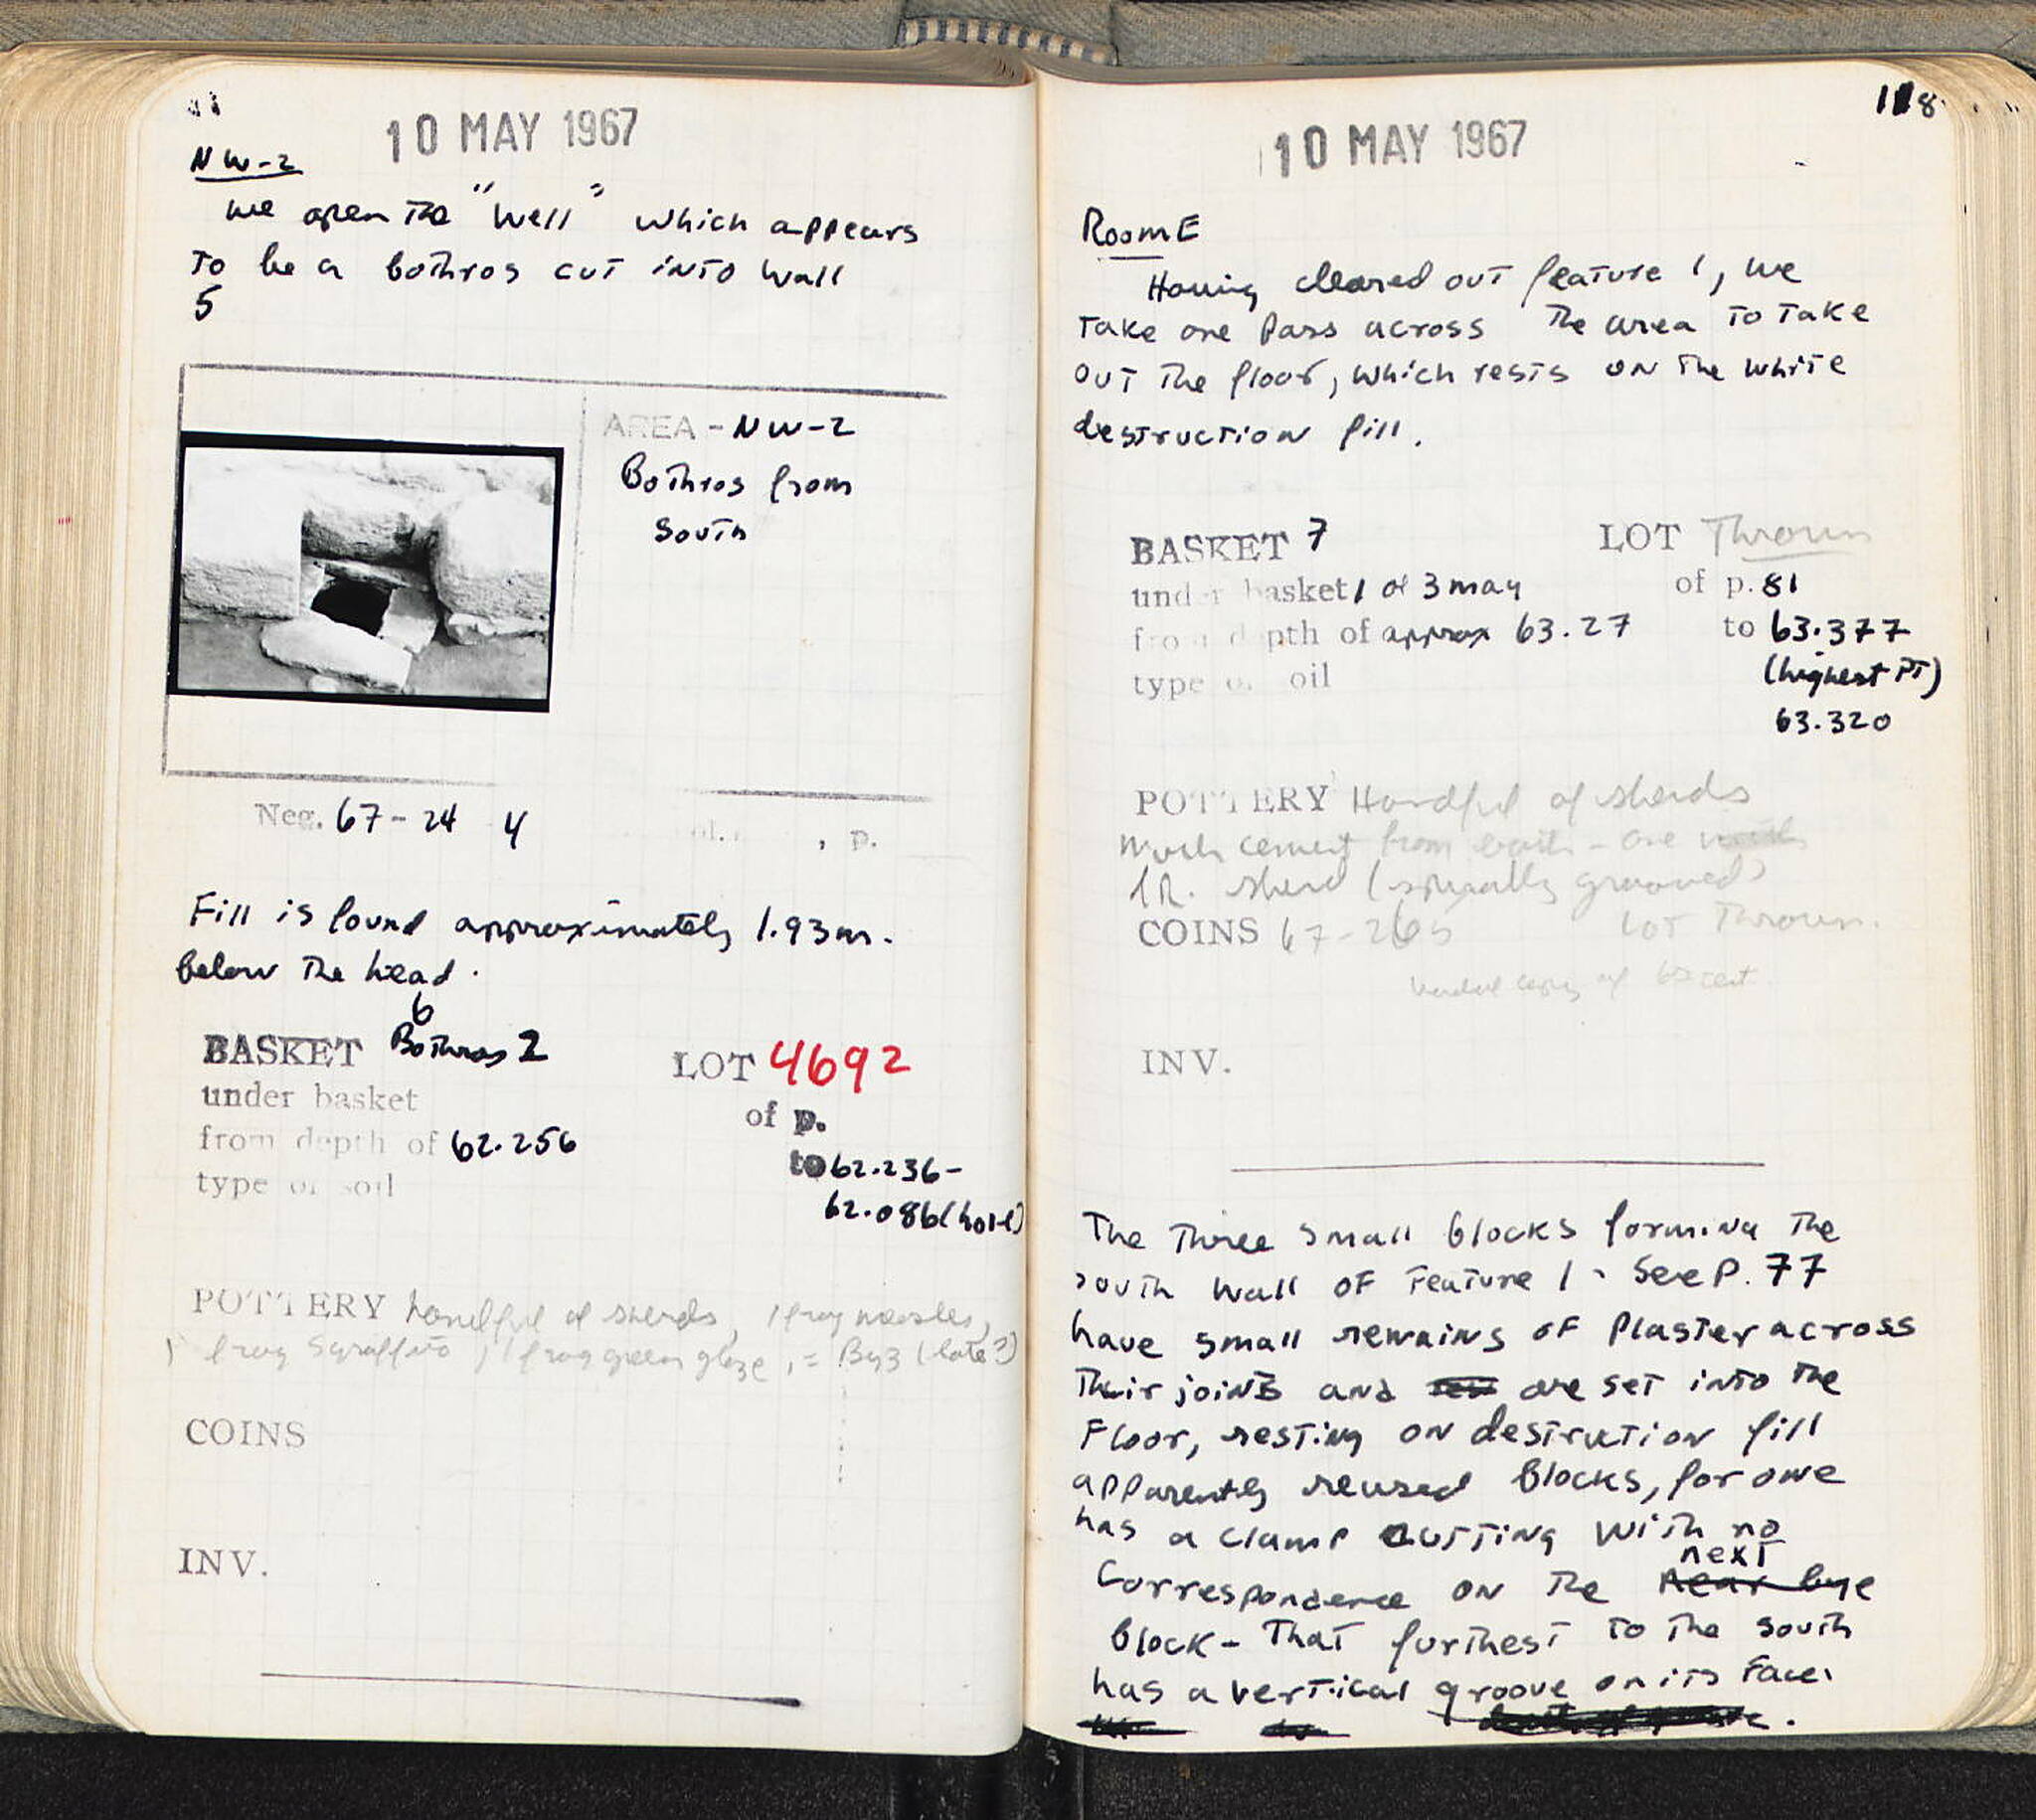 10 MAY 1967
NW-2
we open the "well" which appears
to be a bothros cut into wall
5
AREA - NW-2
Bothros from
South
Neg. 67-24 4
, p.
Fill is found approximately 1.93m.
below the head.
6
BASKET Bothros 2 LOT 4692
under basket of p.
from depth of 62.256 to 62.236-
type of soil 62.086 (hole)
POTTERY handful of sherds, 1 frag
1 frag Sgraffito, 1 frag green glaze, = Byz (late?)
COINS
INV.
118
10 MAY 1967
Room E
Having cleared out feature 1, we
take one pass across the area to take
out the floor, which rests on the white
destruction fill.
BASKET 7 LOT Thrown
under basket 1 of 3 may of p. 81
from depth of approx 63.27 to 63.377
type of soil (highest PT)
63.320
POTTERY Handful of sherds
much cement from - one
LR. sherd (spirally grooved)
COINS 67-265 LOT Thrown.
INV.
The Three small blocks forming the
south wall of Feature 1 - See P. 77
have small remains of Plaster across
Their joints and are set into the
Floor, resting on destruction fill
apparently reused blocks, for one
has a clamp cutting with no
next
Correspondence on the near bye
block - That furthest to the south
has a vertical groove on its Face.